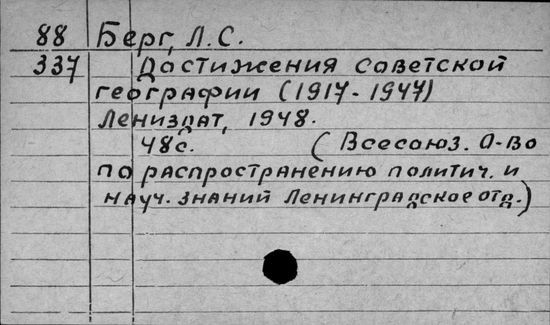 88 Берг, Л.С.
337 Достижения советской
географии (1917-1947)
Лениздат, 1948.
48с. (Всесоюз. О-во
по распространению политич. и
науч. знаний Ленинградское отд.)